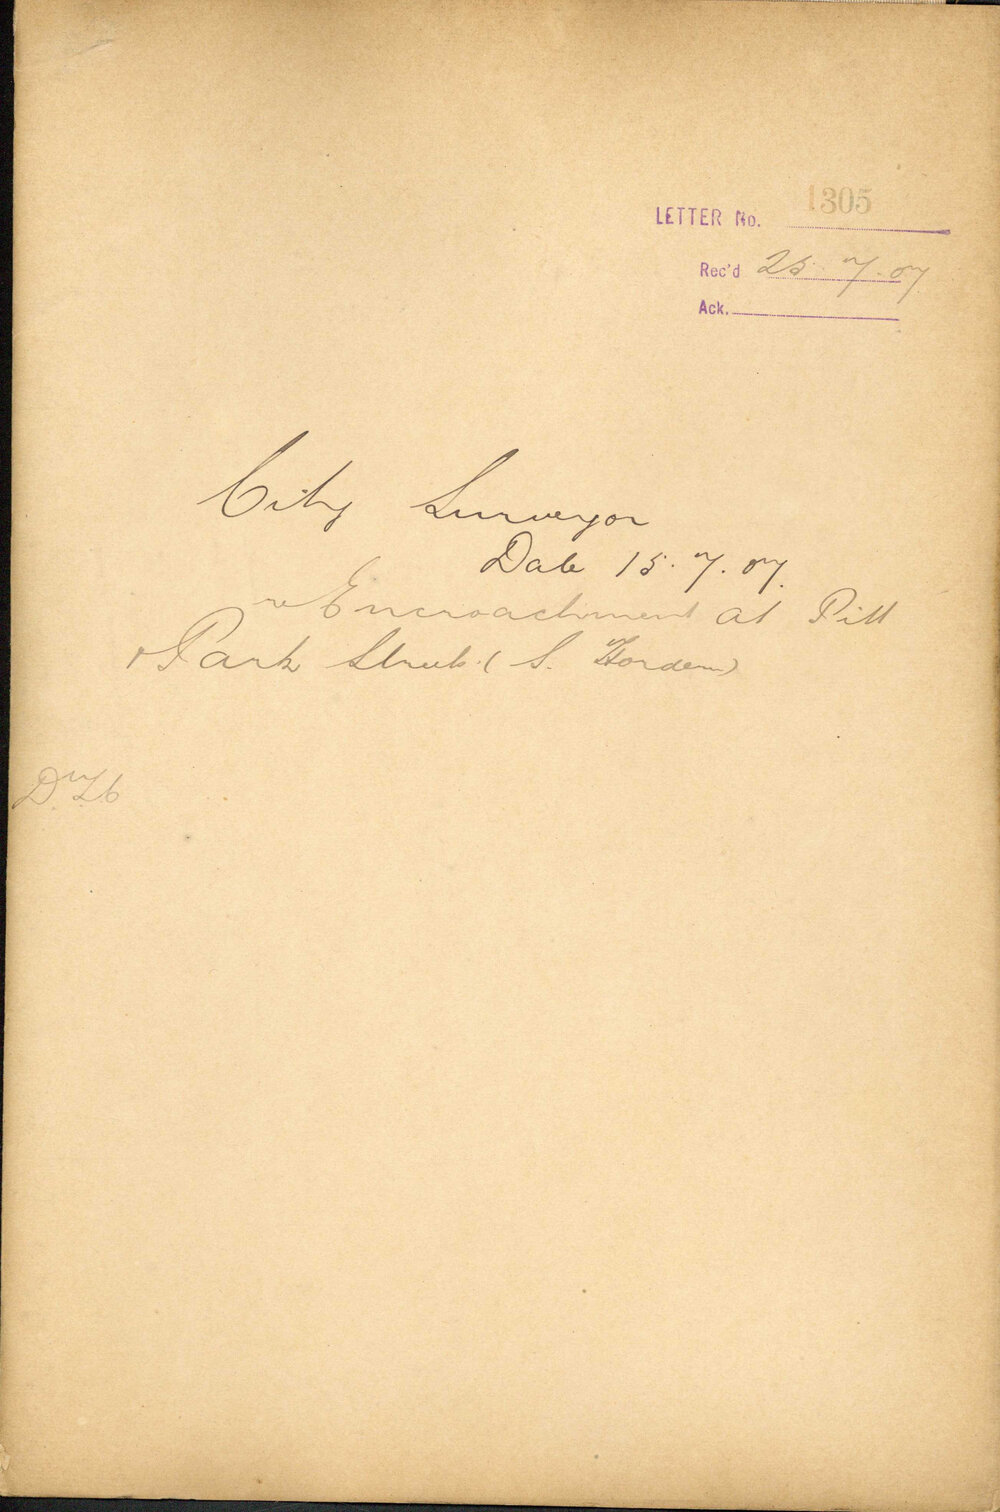 LETTER No. 1305
Rec'd 25.7.07
Ack.
City Surveyor
Date 15.7.07.
re Encroachment at Pitt
& Park Streets (S. Hordern)